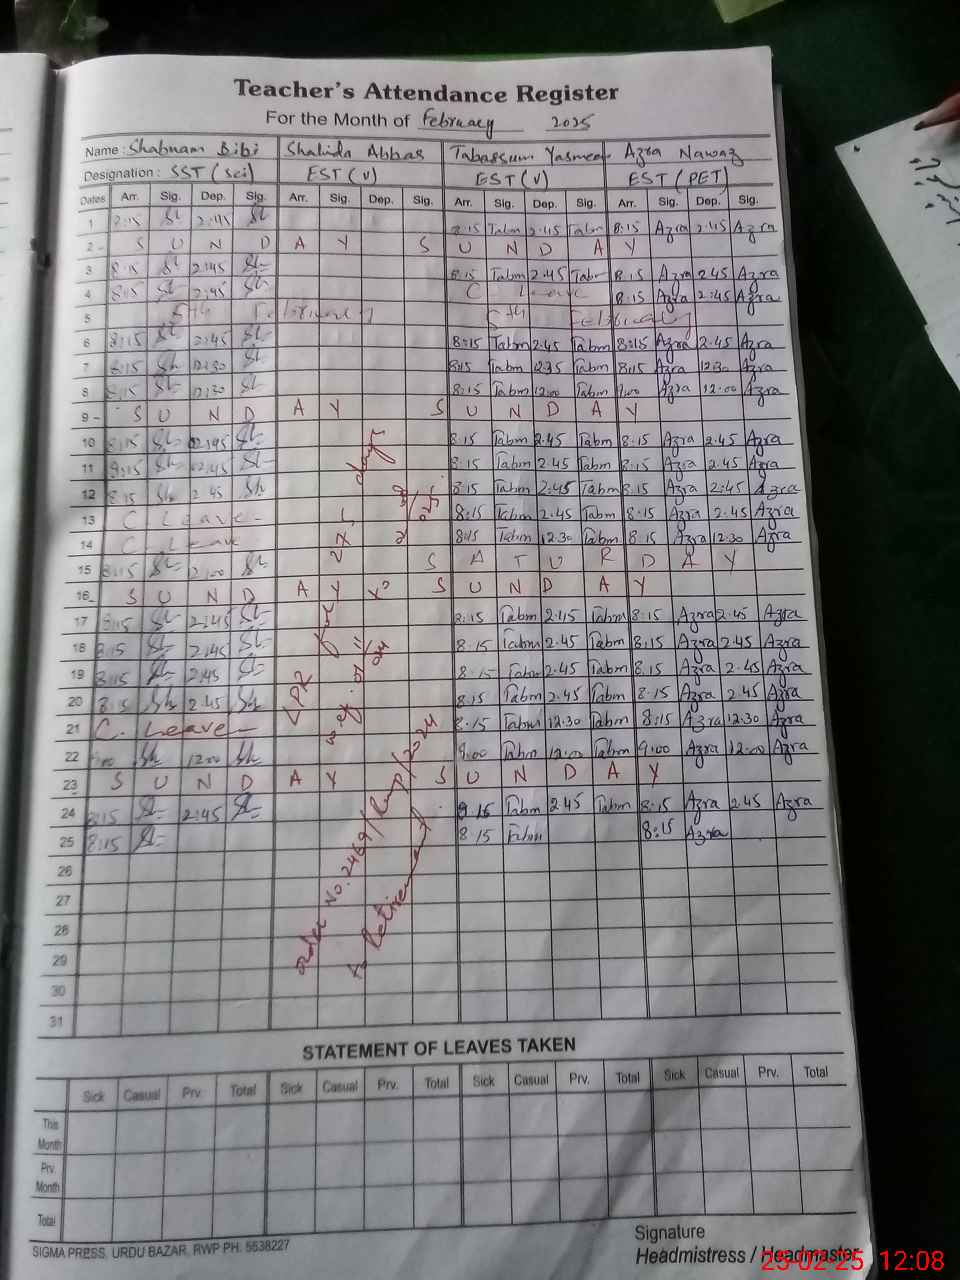 Teacher's Attendance Register
For the Month of February 2025
Name : Shabnam Bibi Shahida Abbas Tabassum Yasmeen Azra Nawaz
Designation : SST (sci) EST (V) EST (V) EST (PET)
Dates Arr. Sig. Dep. Sig. Arr. Sig. Dep. Sig. Arr. Sig. Dep. Sig. Arr. Sig. Dep. Sig.
1 8:15 2:45 8.15 Tabm 2.45 Tabm 8:15 Azra 2.45 Azra
2 - S U N D A Y S U N D A Y
3 8:15 2:45 8.15 Tabm 2.45 Tabm 8.15 Azra 2.45 Azra
4 8:15 2:45 C - Leave 8.15 Azra 2:45 Azra
5 5th February 5th February
6 8:15 2:45 8:15 Tabm 2.45 Tabm 8:15 Azra 2.45 Azra
7 8:15 12:30 8:15 Tabm Tabm 8:15 Azra 12.30 Azra
8 8:15 8:15 Tabm 12:00 Tabm 9.00 Azra 12.00 Azra
9 - S U N D A Y S U N D A Y
10 8:15 02:45 8.15 Tabm 2.45 Tabm 8:15 Azra 2.45 Azra
11 02:45 8.15 Tabm 2.45 Tabm 8:15 Azra 2.45 Azra
12 8.15 2 45 8:15 Tabm 2:45 Tabm 8.15 Azra 2:45 Azra
13 C Leave - 8:15 Tabm 2.45 Tabm 8.15 Azra 2.45 Azra
14 C. Leave 8:15 Tabm 12.30 Tabm 8.15 Azra 12.30 Azra
15 8:15 S A T U R D A Y
16 - S U N D A Y S U N D A Y
17 8:15 2:45 8:15 Tabm 2.45 Tabm 8:15 Azra 2.45 Azra
18 8:15 2:45 8.15 Tabm 2.45 Tabm 8:15 Azra 2.45 Azra
19 8:15 2:45 8.15 Tabm 2.45 Tabm 8.15 Azra 2.45 Azra
20 8:15 2.45 8.15 Tabm 2.45 Tabm 8.15 Azra 2.45 Azra
21 C. Leave - 8.15 Tabm 12.30 Tabm 8:15 Azra 12.30 Azra
22 9:00 12:00 9.00 Tabm 12:00 Tabm 9:00 Azra 12:00 Azra
23 S U N D A Y S U N D A Y
24 8:15 2:45 Tabm 2.45 Tabm 8:15 Azra 2.45 Azra
25 8:15 8.15 Tabm 8:15 Azra
26
27
28
29
30
31
LPR for 275 days
order No. 2469/
/2024
to Retirement
STATEMENT OF LEAVES TAKEN
Sick Casual Prv. Total Sick Casual Prv. Total Sick Casual Prv. Total Sick Casual Prv. Total
This
Month
Prv.
Month
Total
SIGMA PRESS, URDU BAZAR, RWP PH: 5538227
Signature
Headmistress / Headmaster
25-02-25 12:08